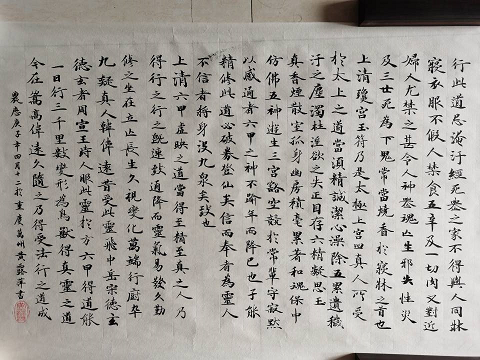 行此道忌淹汙經死喪之家不得與人同牀
寢衣服不假人禁食五辛及一切肉又對近
婦人尤禁之甚令人神喪魂亡生邪失性災
及三世死為下鬼常當燒香於寢牀之首也
上清瓊宮玉符乃是太極上宮四真人所受
於太上之道當須精誠潔心澡除五累遺穢
汙之塵濁杜淫欲之失正目存六精凝思玉
真香煙散室孤身幽房積毫累著和魂保中
仿佛五神遊生三宮豁空競於常輩守寂默
以感通者六甲之神不踰年而降已也子能
精修此道必破券登仙矣信而奉者為靈人
不信者將身沒九泉矣致也
上清六甲虛映之道當得至精至真之人乃
得行之行之既速致通降而靈氣易發久勤
修之坐在立亡長生久視變化萬端行廚卒
九疑真人韓偉遠昔受此靈飛中岳宗德玄
德玄者周宣王時人服此靈於方六甲得道能
一日行三千里數變形為鳥獸得真靈之道
今在嵩高偉遠久隨之乃得受法行之道成
農历庚子年四月十二於重庆萬州黄蘇萍書